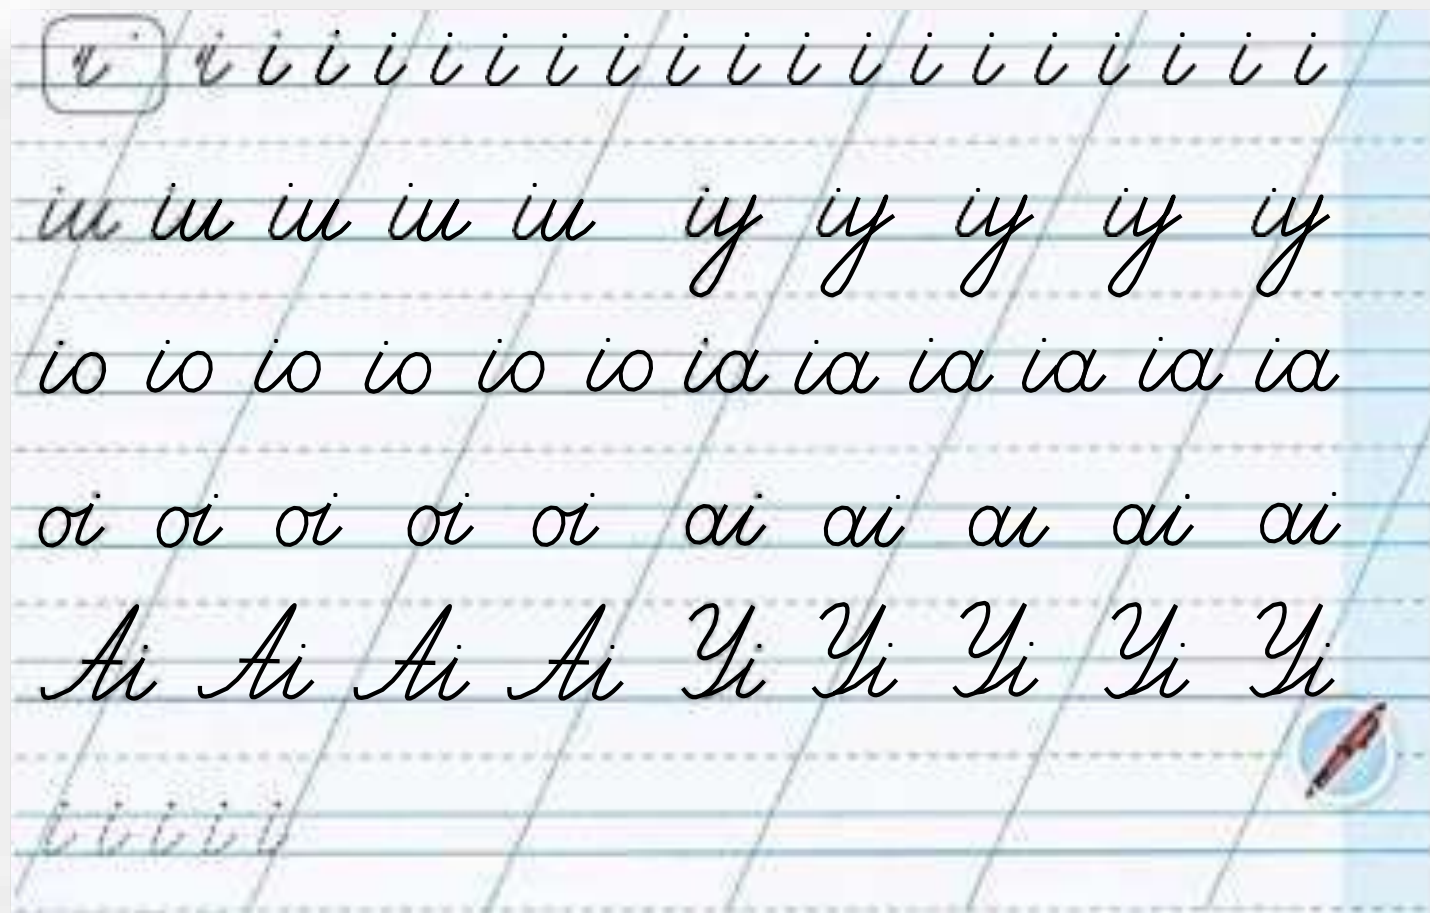 і і і і і і і і і і і і і і і і і і і і
іи іи іи іи іи іу іу іу іу іу
іо іо іо іо іо іо іа іа іа іа іа іа
оі оі оі оі оі аі аі аі аі аі
Аі Аі Аі Аі Уі Уі Уі Уі Уі
і і і і і